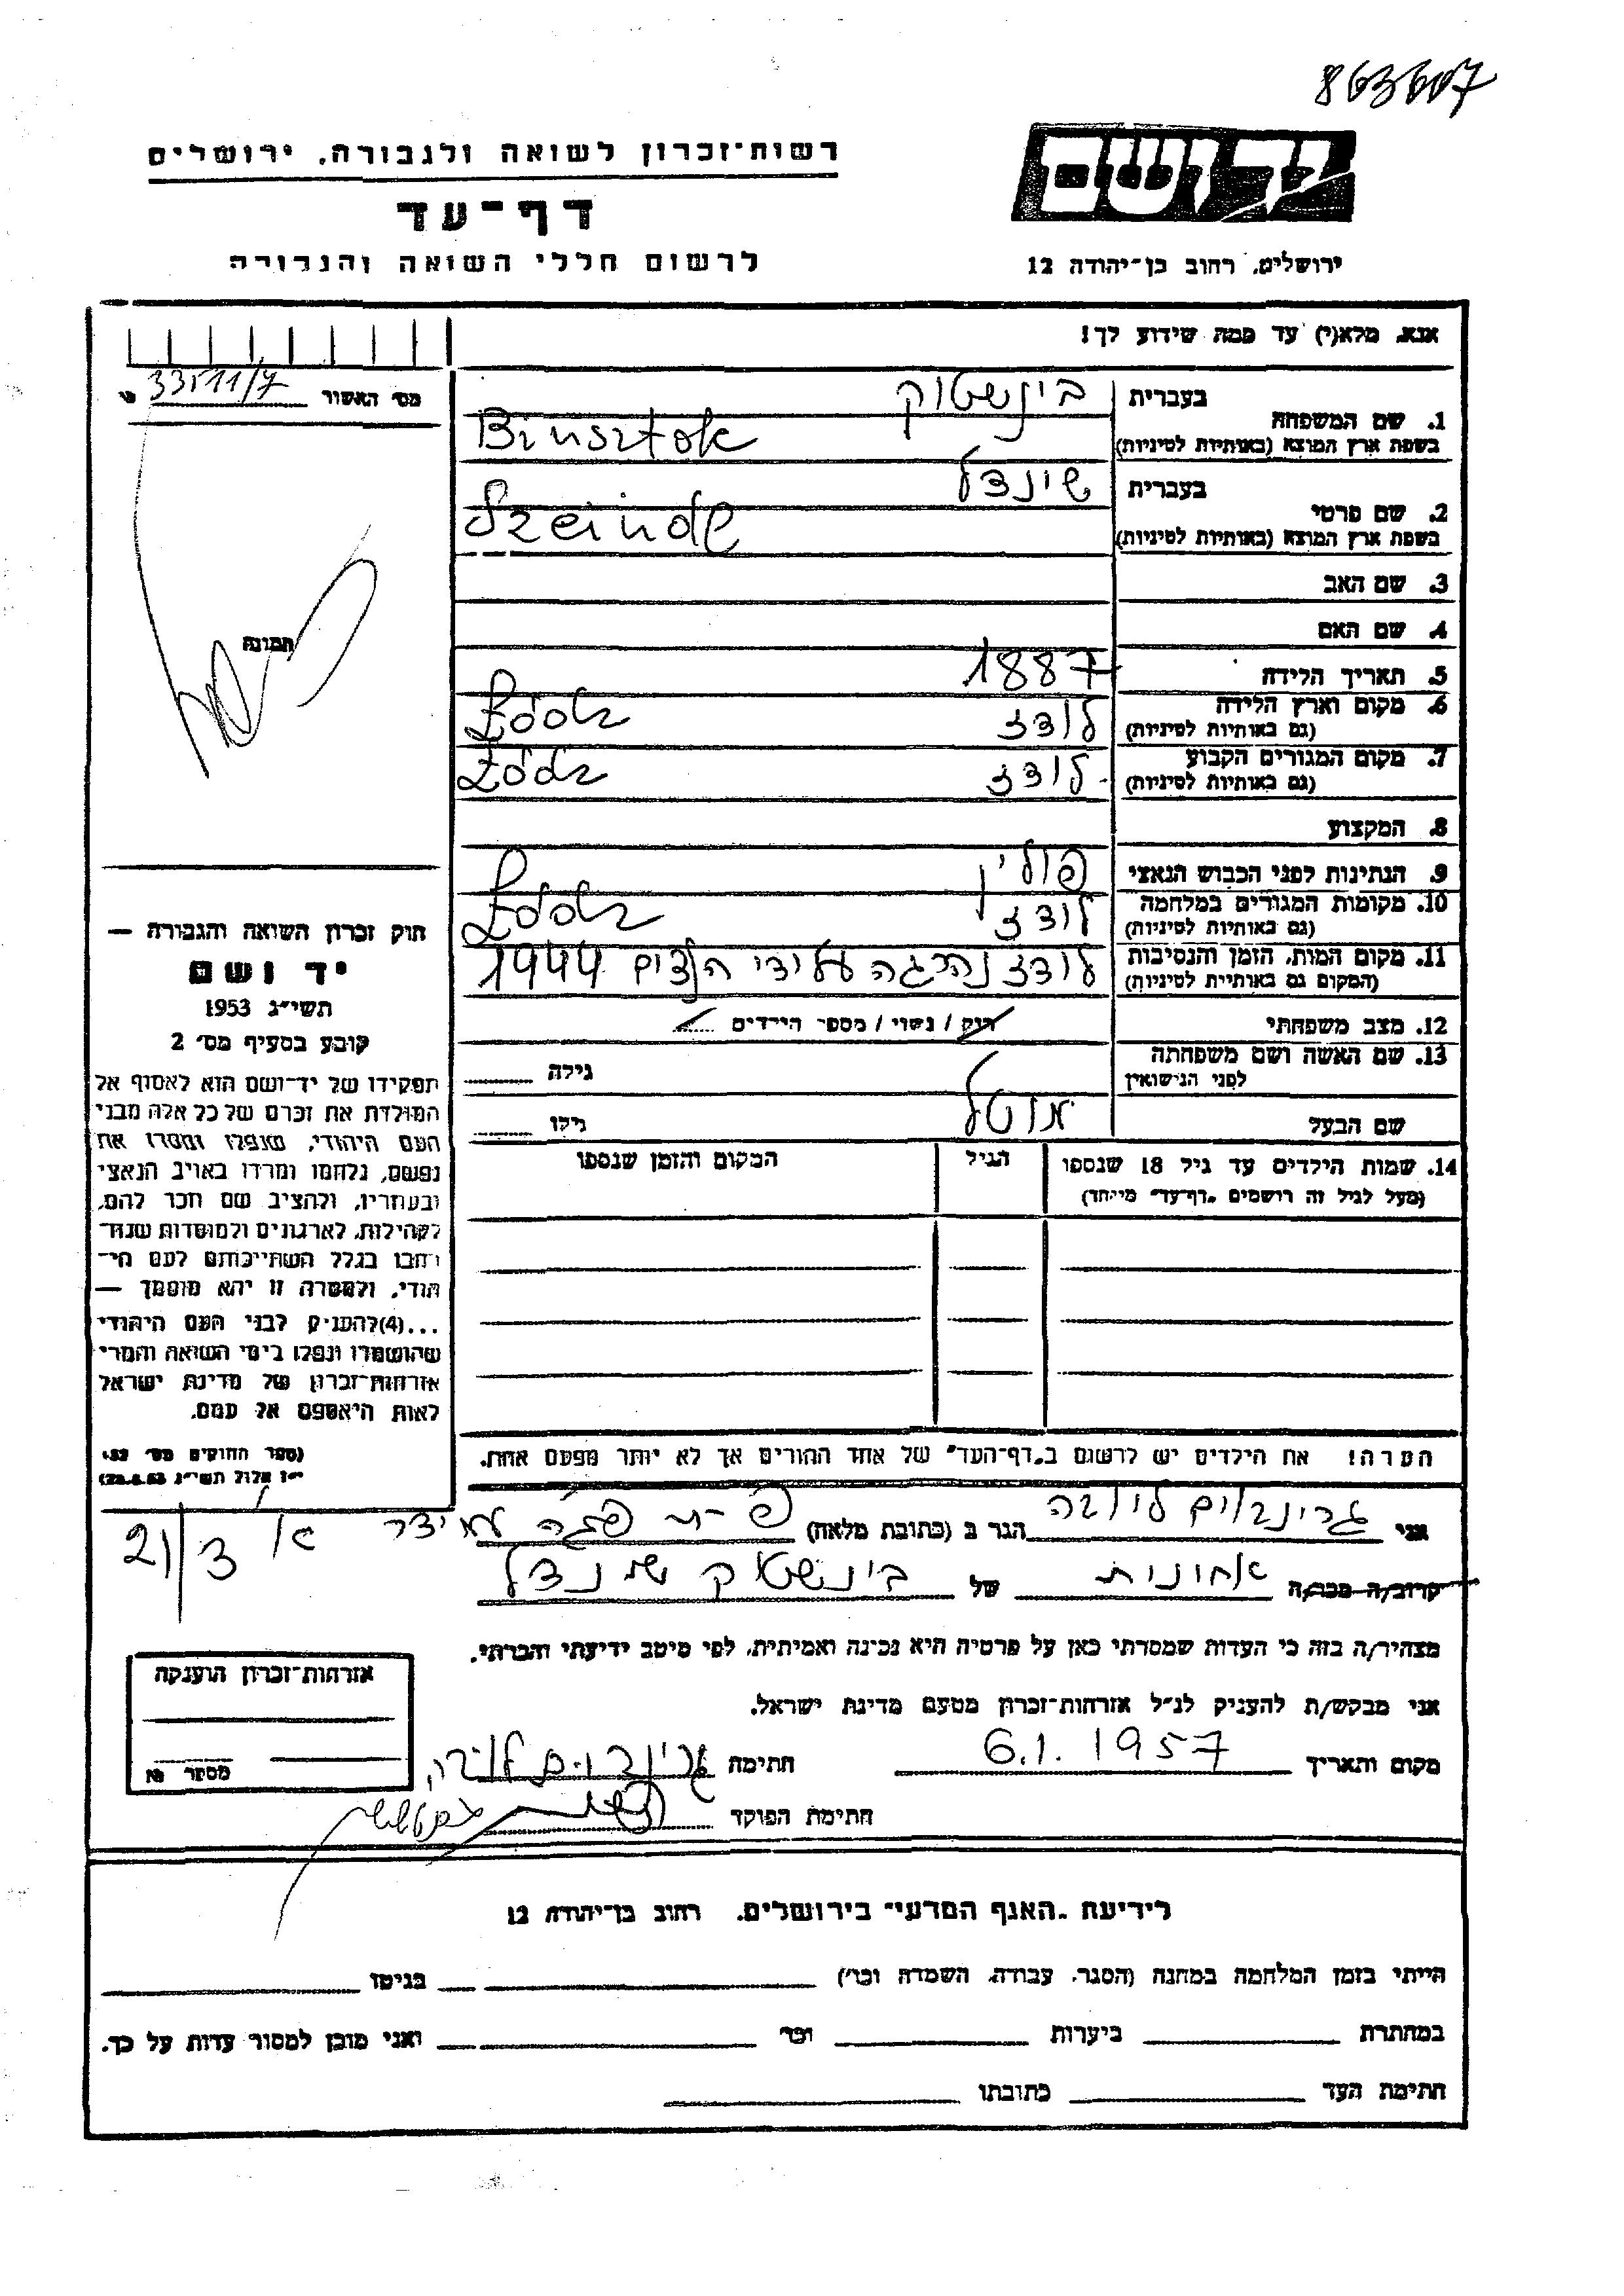 863607
רשות־זכרון לשואה ולגבורה, ירושלים
יד ושם
דף־עד
לרשום חללי השואה והגבורה
ירושלים, רחוב בן־יהודה 12
אנא, מלא(י) עד כמה שידוע לך!
מס׳ האשור 33511/7
1. שם המשפחה בעברית בינשטוק
בשפת ארץ המוצא (באותיות לטיניות) Binsztok
2. שם פרטי בעברית שינדל
בשפת ארץ המוצא (באותיות לטיניות) Szeindl
3. שם האב
4. שם האם
תמונה
5. תאריך הלידה 1887
6. מקום וארץ הלידה לודז Łódz
(גם באותיות לטיניות)
7. מקום המגורים הקבוע לודז Łódz
(גם באותיות לטיניות)
8. המקצוע
9. הנתינות לפני הכבוש הנאצי פולין
10. מקומות המגורים במלחמה לודז Łódz
(גם באותיות לטיניות)
11. מקום המות, הזמן והנסיבות לודז נהרגה על ידי הנצים 1944
(המקום גם באותיות לטיניות)
12. מצב משפחתי רוק / נשוי / מספר הילדים
13. שם האשה ושם משפחתה גילה
לפני הנישואין
שם הבעל גילו
14. שמות הילדים עד גיל 18 שנספו הגיל המקום והזמן שנספו
(מעל לגיל זה רושמים „דף־עד״ מיוחד)
הערה! את הילדים יש לרשום ב„דף־העד״ של אחד ההורים אך לא יותר מפעם אחת.
חוק זכרון השואה והגבורה —
יד ושם
תשי״ג 1953
קובע בסעיף מס׳ 2
תפקידו של יד־ושם הוא לאסוף אל
המולדת את זכרם של כל אלה מבני
העם היהודי, שנפלו ומסרו את
נפשם, נלחמו ומרדו באויב הנאצי
ובעוזריו, ולהציב שם וזכר להם,
לקהילות, לארגונים ולמוסדות שנח־
רבו בגלל השתייכותם לעם הי־
הודי, ולמטרה זו יהא מוסמך —
...(4)להעניק לבני העם היהודי
שהושמדו ונפלו בימי השואה והמרי
אזרחות־זכרון של מדינת ישראל
לאות היאספם אל עמם.
(ספר החוקים מס׳ 132,
י״ז אלול תשי״ג 28.8.53)
אני גרינבוים ליובה הגר ב (כתובת מלאה)
21/3
קרוב/ה מכר/ה אחונית של בינשטוק שינדל
מצהיר/ה בזה כי העדות שמסרתי כאן על פרטיה היא נכונה ואמיתית, לפי מיטב ידיעתי והכרתי.
אני מבקש/ת להעניק לנ״ל אזרחות־זכרון מטעם מדינת ישראל.
מקום ותאריך 6.1.1957 חתימה גרינבוים ליובה
חתימת הפוקד
אזרחות־זכרון הוענקה
מספר
לידיעת „האגף המדעי״ בירושלים, רחוב בן־יהודה 12
הייתי בזמן המלחמה במחנה (הסגר, עבודה, השמדה וכו׳) בגיטו
במחתרת ביערות וכו׳ ואני מוכן למסור עדות על כך.
חתימת העד כתובתו